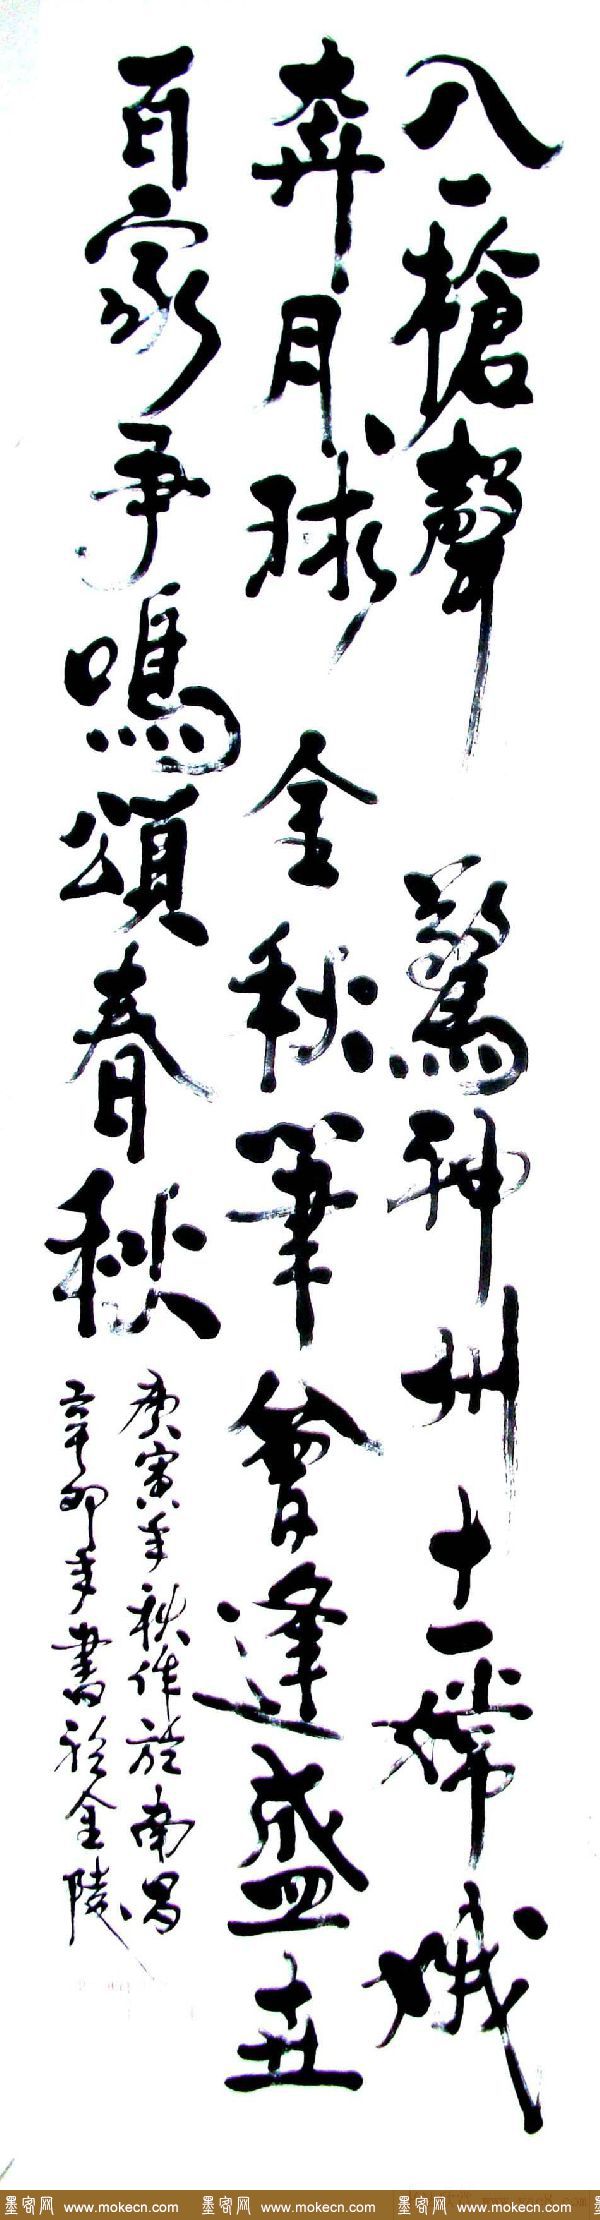 八一槍聲驚神州十一嫦娥
奔月球金秋筆會逢盛世
百家争鳴頌春秋
庚寅年秋作於南昌
辛卯年書於金陵
墨客网 www.mokecn.com 墨客网 www.mokecn.com 墨客网 www.mokecn.com